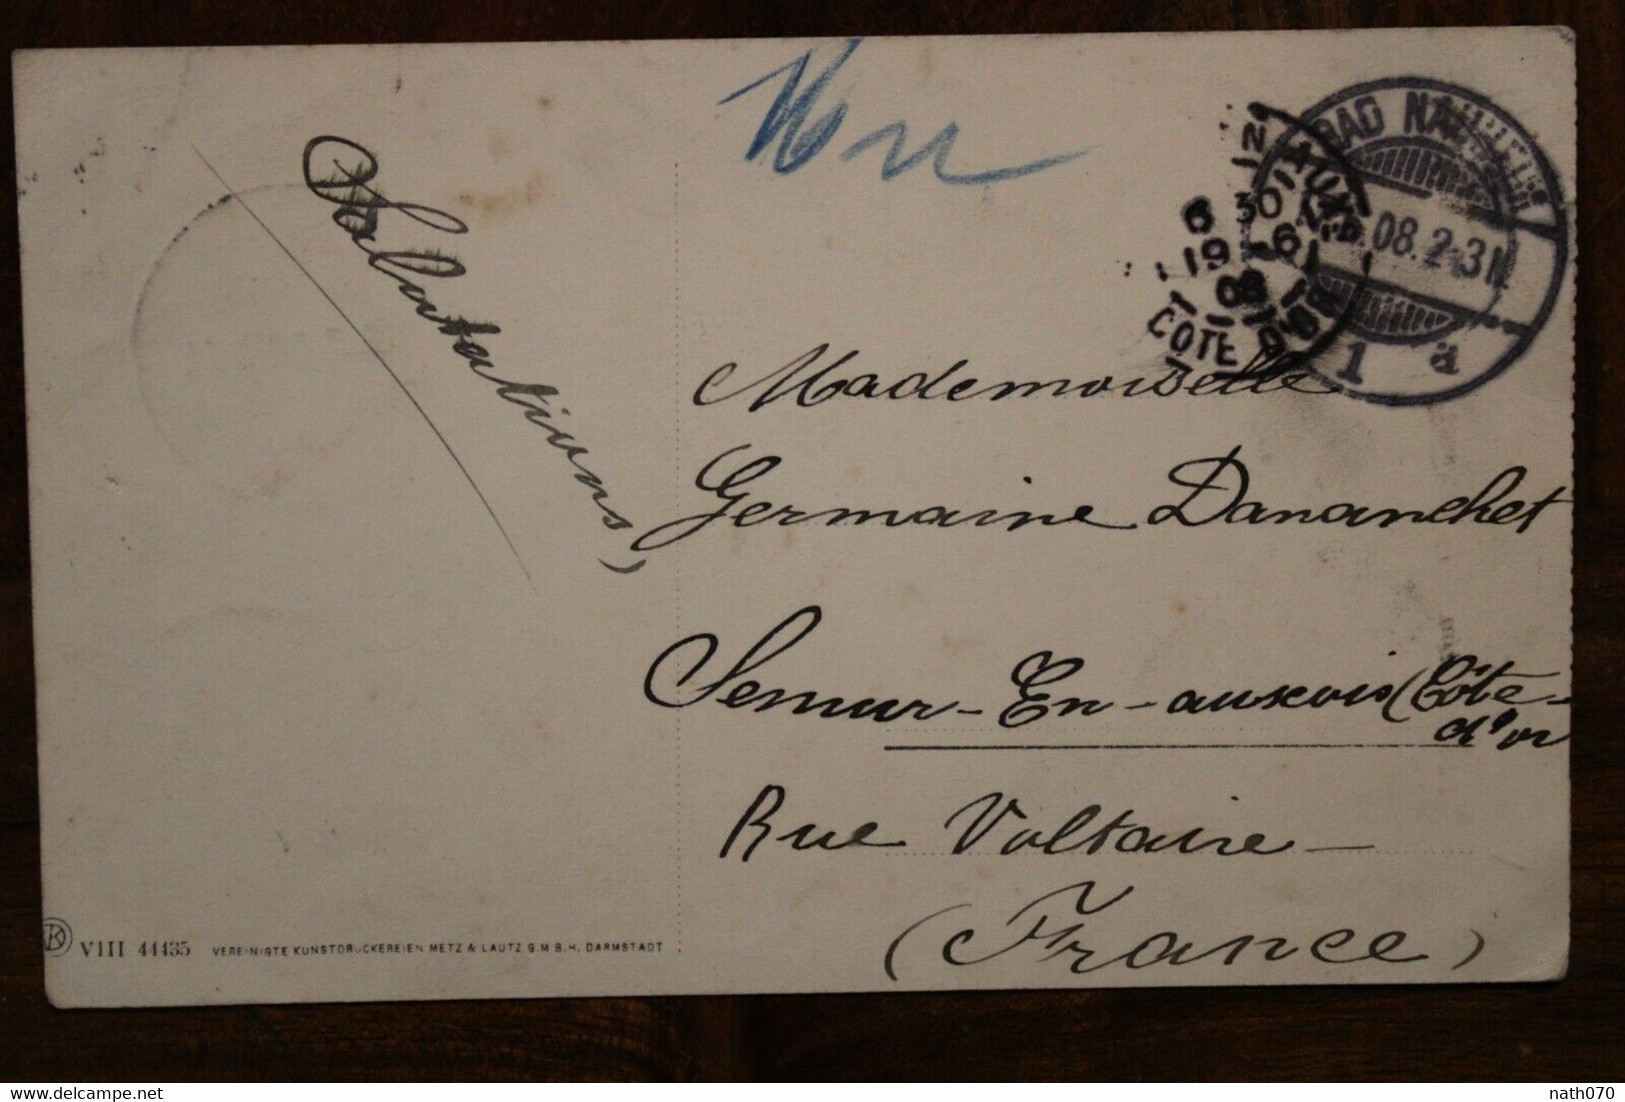 Salutations
BAD NAUHEIM
08.2-3N
1 a
12 30
6
19 6
08
COTE D'OR
Mademoiselle
Germaine Dananchet
Semur-En-auxois (Côte-
d'or
Rue Voltaire-
(France)
VIII 44435 VEREINIGTE KUNSTDRUCKEREIEN METZ & LAUTZ G.M.B.H. DARMSTADT
delcampe.net
nath070